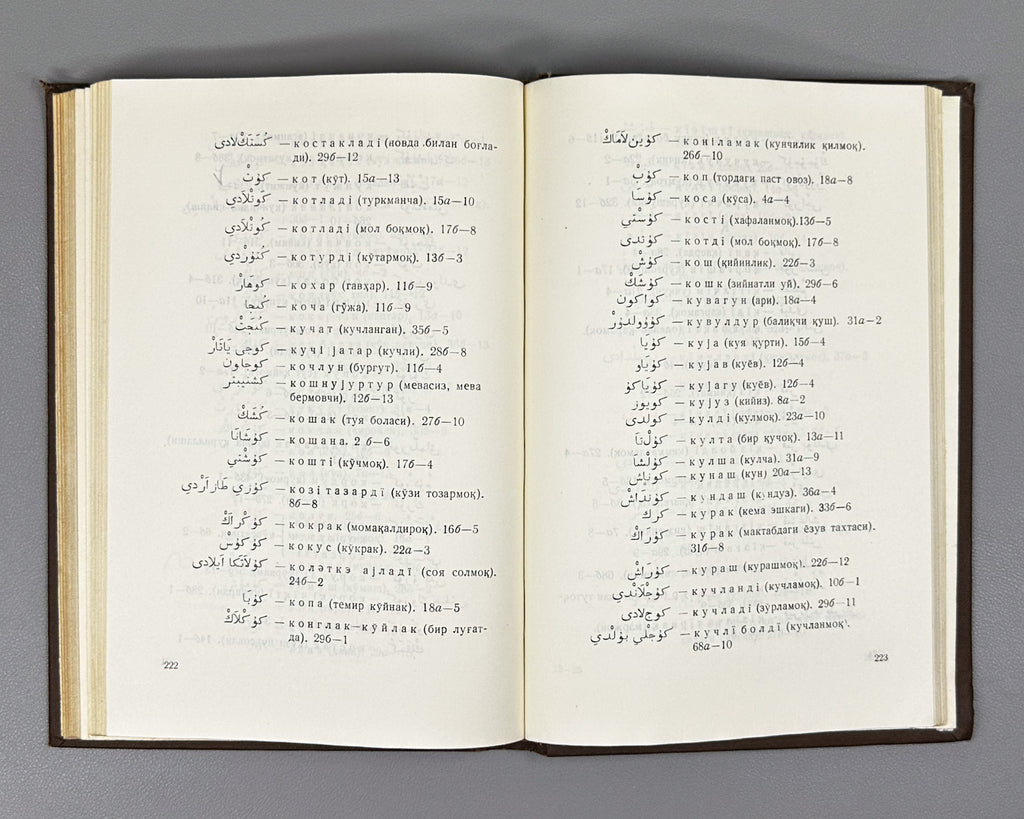 كُسَتَكْلادى — костакладі (новда билан боғла-
ди). 29б—12
كۉتْ — кот (кўт). 15а—13
كَوتْلَادِي — котладі (туркманча). 15а—10
كوتْلَادِي — котладі (мол боқмоқ). 17б—8
كُتُوْرْدِي — котурді (кўтармоқ). 13б—3
كوهَارْ — кохар (гавҳар). 11б—9
كُنجا — коча (гўжа). 11б—9
كُنجَتْ — кучат (кучланган). 35б—5
كوجى يَاتَارْ — кучі јатар (кучли). 28б—8
كوجلون — кочлун (бургут). 11б—4
— кошнујуртур (мевасиз, мева
бермовчи). 12б—13
كُشَكْ — кошак (туя боласи). 27б—10
كوُشَانَا — кошана. 2 б—6
كوُشْتي — кошті (кўчмоқ). 17б—4
كوُزي طَازَارْدي — козітазардї (кўзи тозармоқ).
8б—8
كوُكْراَكْ — кокрак (момақалдироқ). 16б—5
كوُكوُسْ — кокус (кўкрак). 22а—3
كوُلَاتَكا ايلادى — коләткэ ајладї (соя солмоқ).
24б—2
كوُبَا — копа (темир кўйнак). 18а—5
كوُنكْلَاكْ — конглак—кўйлак (бир луғат-
да). 29б—1
222
كوُين لَامَاكْ — коніламак (кунчилик қилмоқ).
26б—10
كوُبْ — коп (тордаги паст овоз). 18а—8
كوُسَا — коса (кўса). 4а—4
كوُسْتي — кості (хафаланмоқ).13б—5
كوُتدى — котді (мол боқмоқ). 17б—8
كوُشْ — кош (қийинлик). 22б—3
كوُشَكْ — кошк (зийнатли уй). 29б—6
كواكون — кувагун (ари). 18а—4
كوُوُولدوُرْ — кувулдур (балиқчи қуш). 31а—2
كوُيَا — куја (куя қурти). 15б—4
كوُيَاو — кујав (куёв). 12б—4
كوُيَاكوُ — кујагу (куёв). 12б—4
كويوز — кујуз (кийиз). 8а—2
كولدى — кулді (кулмоқ). 23а—10
كوُلْتا — култа (бир қучоқ). 13а—11
كوُلْشَا — кулша (кулча). 31а—9
كوناش — кунаш (кун) 20а—13
كوُنداَشْ — кундаш (кундуз). 36а—4
كرك — курак (кема эшкаги). 33б—6
كوُراَكْ — курак (мактабдаги ёзув тахтаси).
31б—8
كوُراَشْ — кураш (курашмоқ). 22б—12
كوُجْلَانْدي — кучланді (кучламоқ). 10б—1
كوجلادى — кучладі (зўрламоқ). 29б—11
كوُجْلي بوُلْدي — кучлї болді (кучланмоқ).
68а—10
223